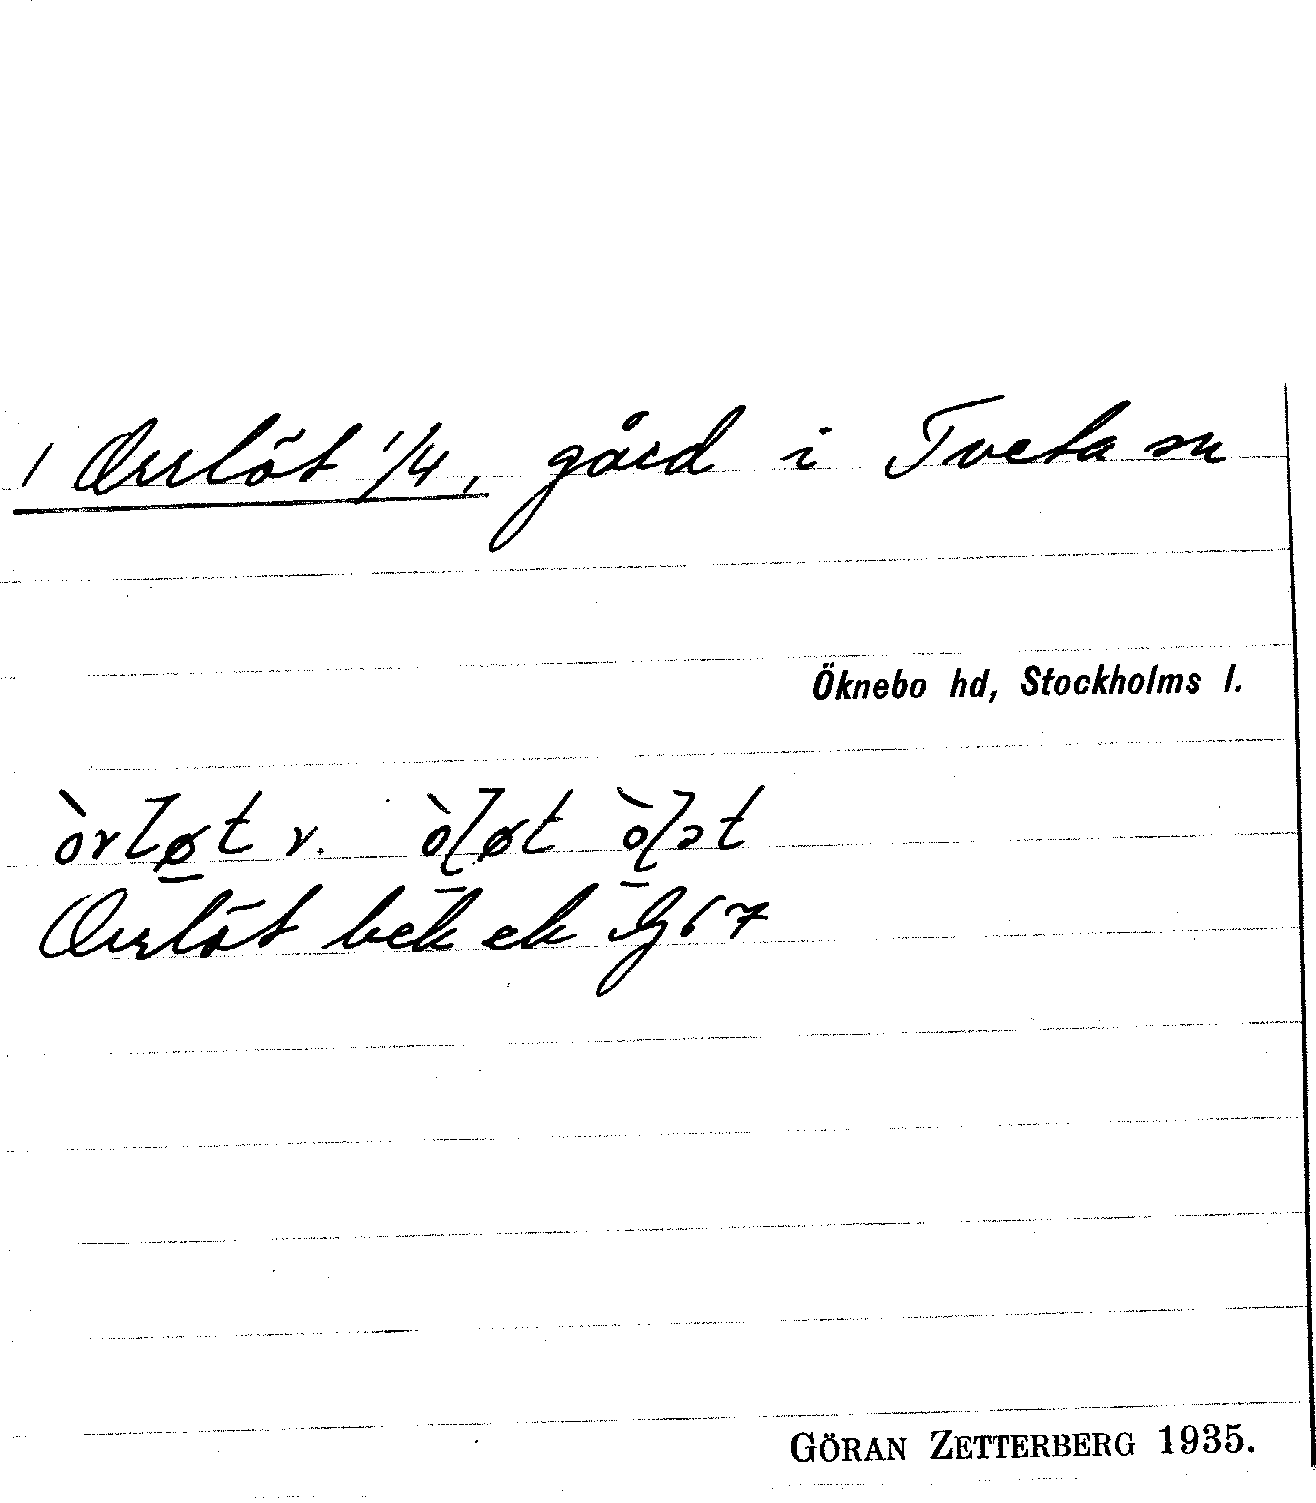 1 Orrlöt 1/4, gård i Tveta sn
Öknebo hd, Stockholms l.
òrløt v. òḷøt òḷət
Orrlöt bek ek
GÖRAN ZETTERBERG 1935.